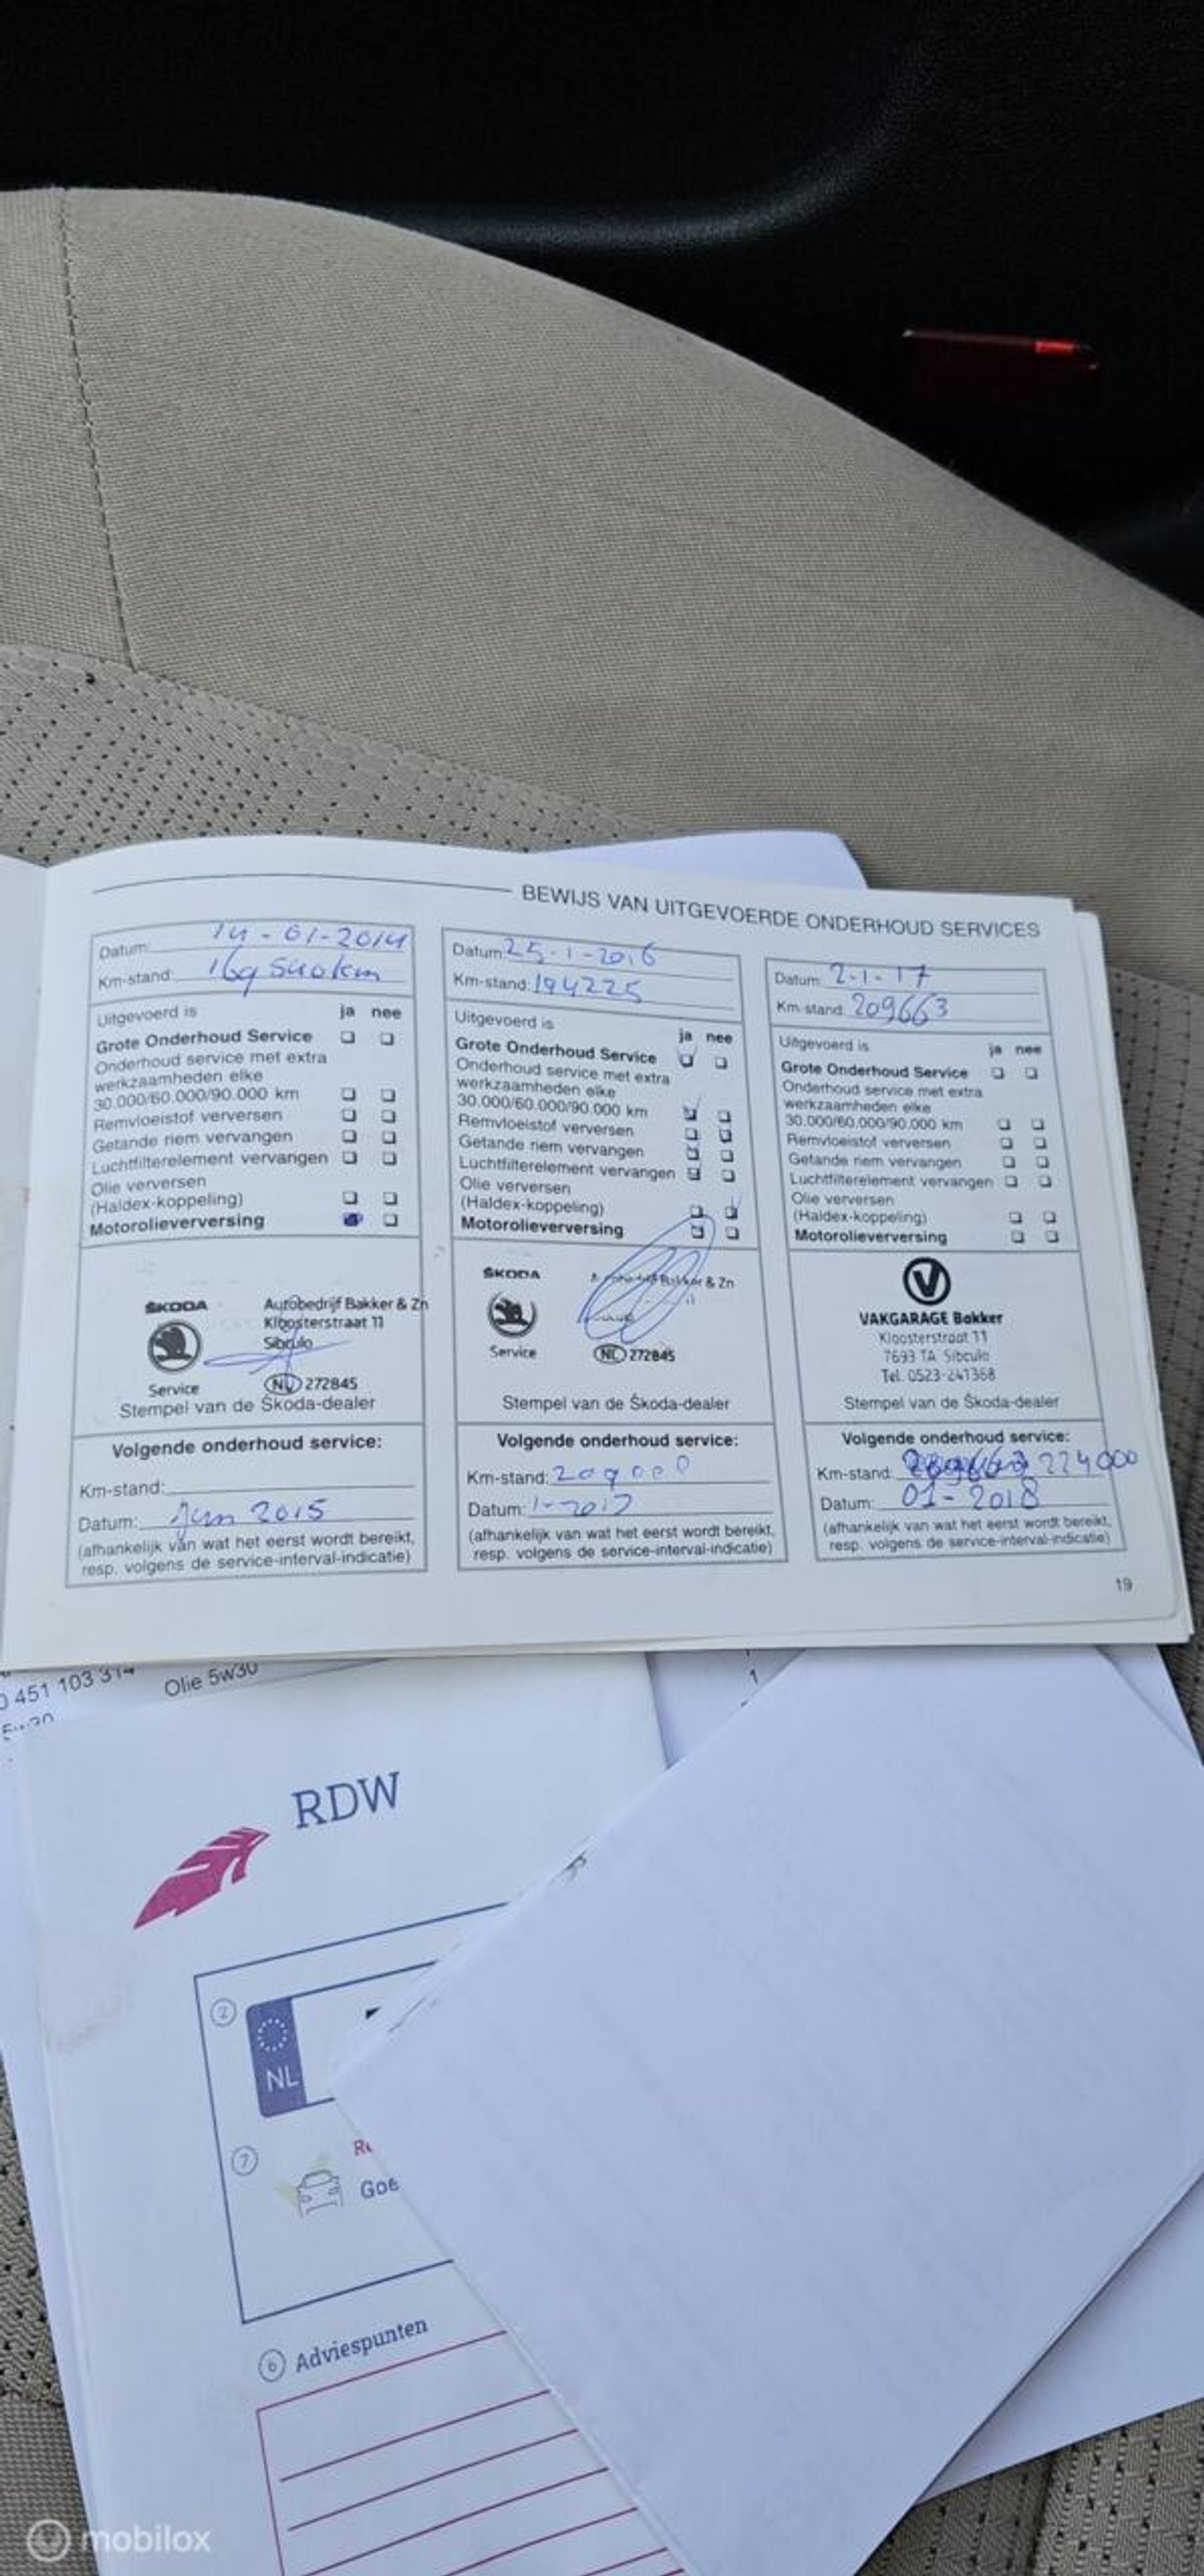 BEWIJS VAN UITGEVOERDE ONDERHOUD SERVICES
Datum: 14-01-2014
Km-stand: 169 540km
Uitgevoerd is ja nee
Grote Onderhoud Service
Onderhoud service met extra
werkzaamheden elke
30.000/60.000/90.000 km
Remvloeistof verversen
Getande riem vervangen
Luchtfilterelement vervangen
Olie verversen
(Haldex-koppeling)
Motorolieverversing
ŠKODA
Service
Autobedrijf Bakker & Zn
Kloosterstraat 11
Sibculo
NL 272845
Stempel van de Škoda-dealer
Volgende onderhoud service:
Km-stand:
Datum: 2015
(afhankelijk van wat het eerst wordt bereikt,
resp. volgens de service-interval-indicatie)
Datum: 25-1-2016
Km-stand: 194225
Uitgevoerd is
ja nee
Grote Onderhoud Service
Onderhoud service met extra
werkzaamheden elke
30.000/60.000/90.000 km
Remvloeistof verversen
Getande riem vervangen
Luchtfilterelement vervangen
Olie verversen
(Haldex-koppeling)
Motorolieverversing
ŠKODA
Service
Bakker & Zn
NL 272845
Stempel van de Škoda-dealer
Volgende onderhoud service:
Km-stand: 209000
Datum: 1-2017
(afhankelijk van wat het eerst wordt bereikt,
resp. volgens de service-interval-indicatie)
Datum: 2-1-17
Km-stand: 209663
Uitgevoerd is
ja nee
Grote Onderhoud Service
Onderhoud service met extra
werkzaamheden elke
30.000/60.000/90.000 km
Remvloeistof verversen
Getande riem vervangen
Luchtfilterelement vervangen
Olie verversen
(Haldex-koppeling)
Motorolieverversing
V
VAKGARAGE Bakker
Kloosterstraat 11
7693 TA Sibculo
Tel. 0523-241368
Stempel van de Škoda-dealer
Volgende onderhoud service:
Km-stand: 224000
Datum: 01-2018
(afhankelijk van wat het eerst wordt bereikt,
resp. volgens de service-interval-indicatie)
19
0 451 103 314 Olie 5w30
1
RDW
2
NL
7
Goe
6 Adviespunten
mobilox